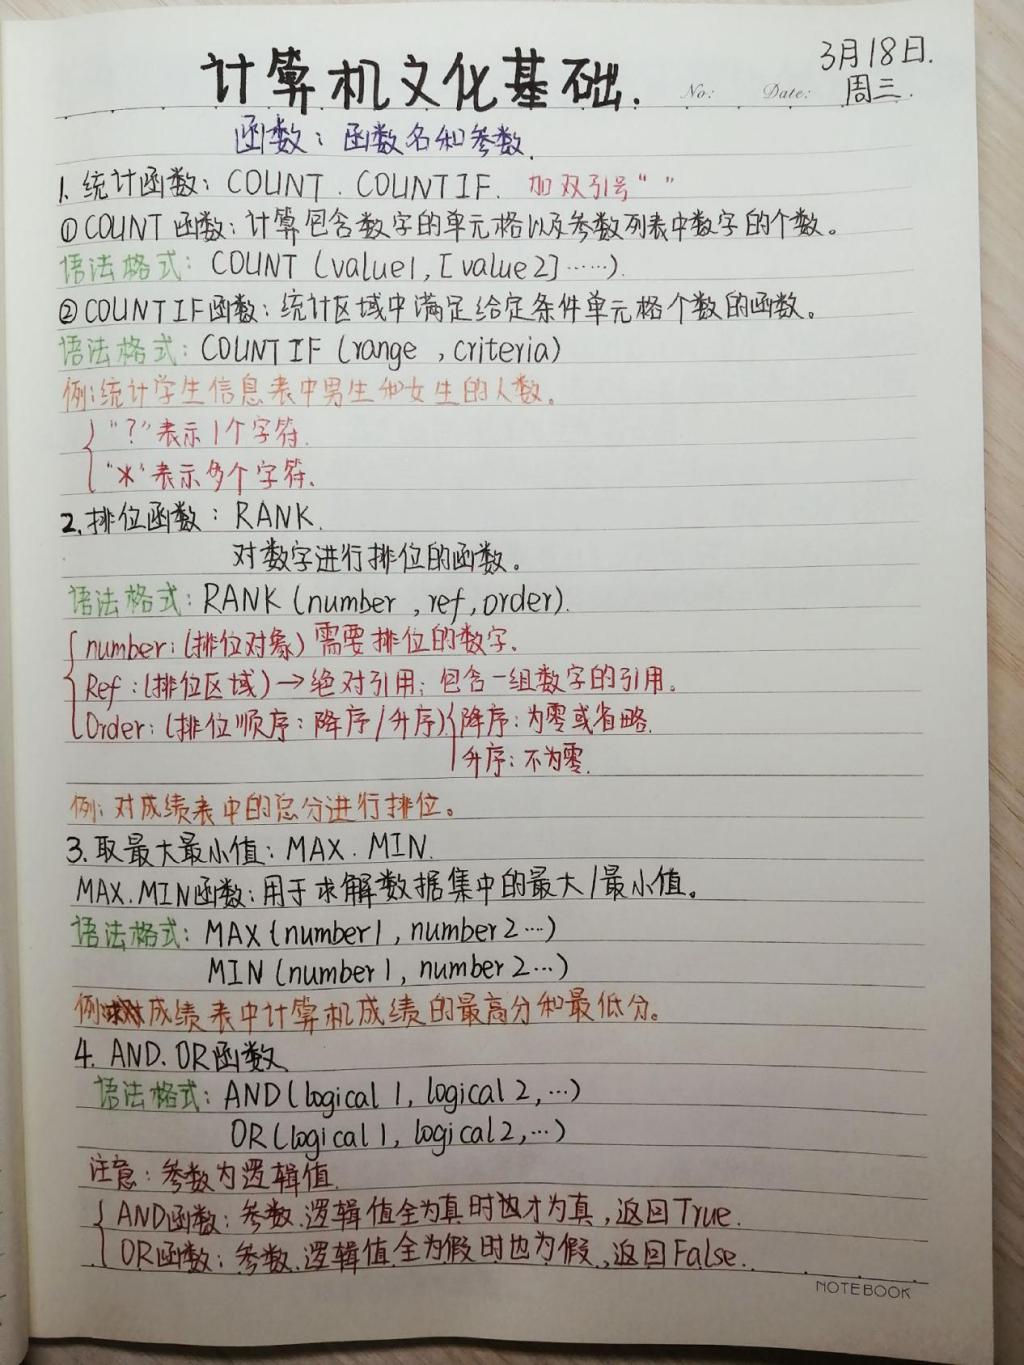 3月18日.
计算机文化基础.
No:
Date:
周三.
函数：函数名和参数.
1. 统计函数：COUNT. COUNTIF. 加双引号" "
①COUNT函数：计算包含数字的单元格以及参数列表中数字的个数。
语法格式：COUNT (value1, [value2]……).
②COUNTIF函数：统计区域中满足给定条件单元格个数的函数。
语法格式：COUNTIF (range ,criteria)
例：统计学生信息表中男生和女生的人数。
"?"表示1个字符.
"*"表示多个字符.
2. 排位函数：RANK.
对数字进行排位的函数。
语法格式：RANK (number ,ref,order).
number：(排位对象) 需要排位的数字.
Ref：(排位区域)→绝对引用；包含一组数字的引用。
Order：(排位顺序：降序/升序) 降序：为零或省略.
升序：不为零.
例：对成绩表中的总分进行排位。
3. 取最大最小值：MAX. MIN.
MAX.MIN函数：用于求解数据集中的最大/最小值。
语法格式：MAX (number1, number2…)
MIN (number1, number2…)
例 成绩表中计算机成绩的最高分和最低分。
4. AND. OR函数
语法格式：AND (logical1, logical2,…)
OR (logical1, logical2,…)
注意：参数为逻辑值.
AND函数：参数.逻辑值全为真时也才为真,返回True.
OR函数：参数.逻辑值全为假时也为假,返回False.
NOTEBOOK